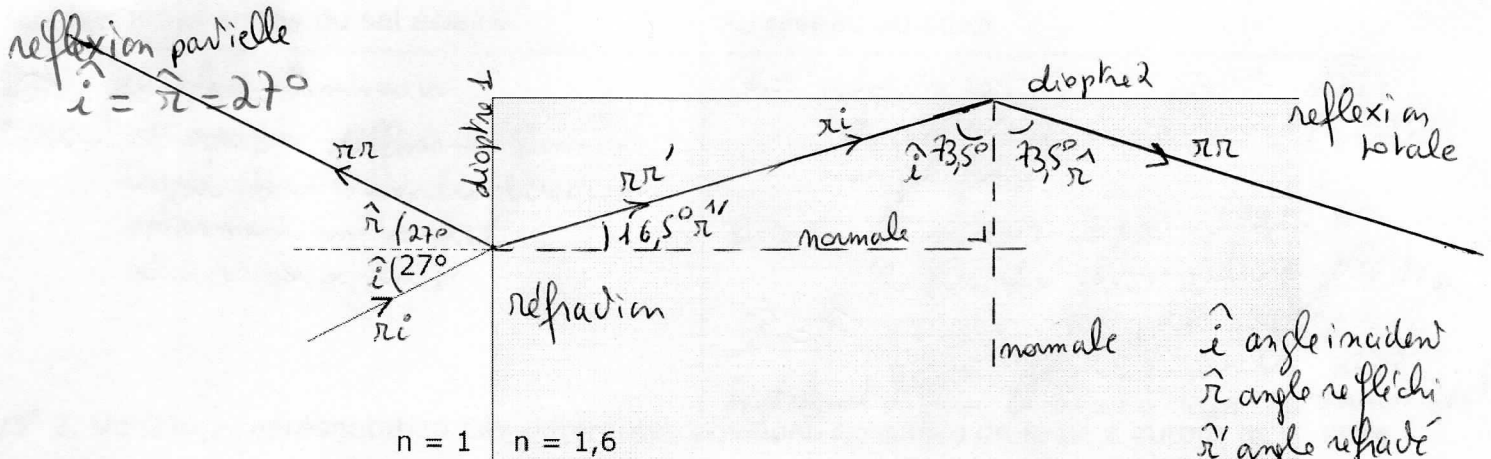 reflexion partielle
î = r̂ = 27°
dioptre 1
dioptre 2
reflexion
totale
rr
rr'
ri
î 73,5°
73,5° r̂
rr
r̂ (27°
î (27°
ri
)16,5° r̂'
normale
réfraction
normale
î angle incident
r̂ angle refléchi
r̂' angle refracté
n = 1
n = 1,6